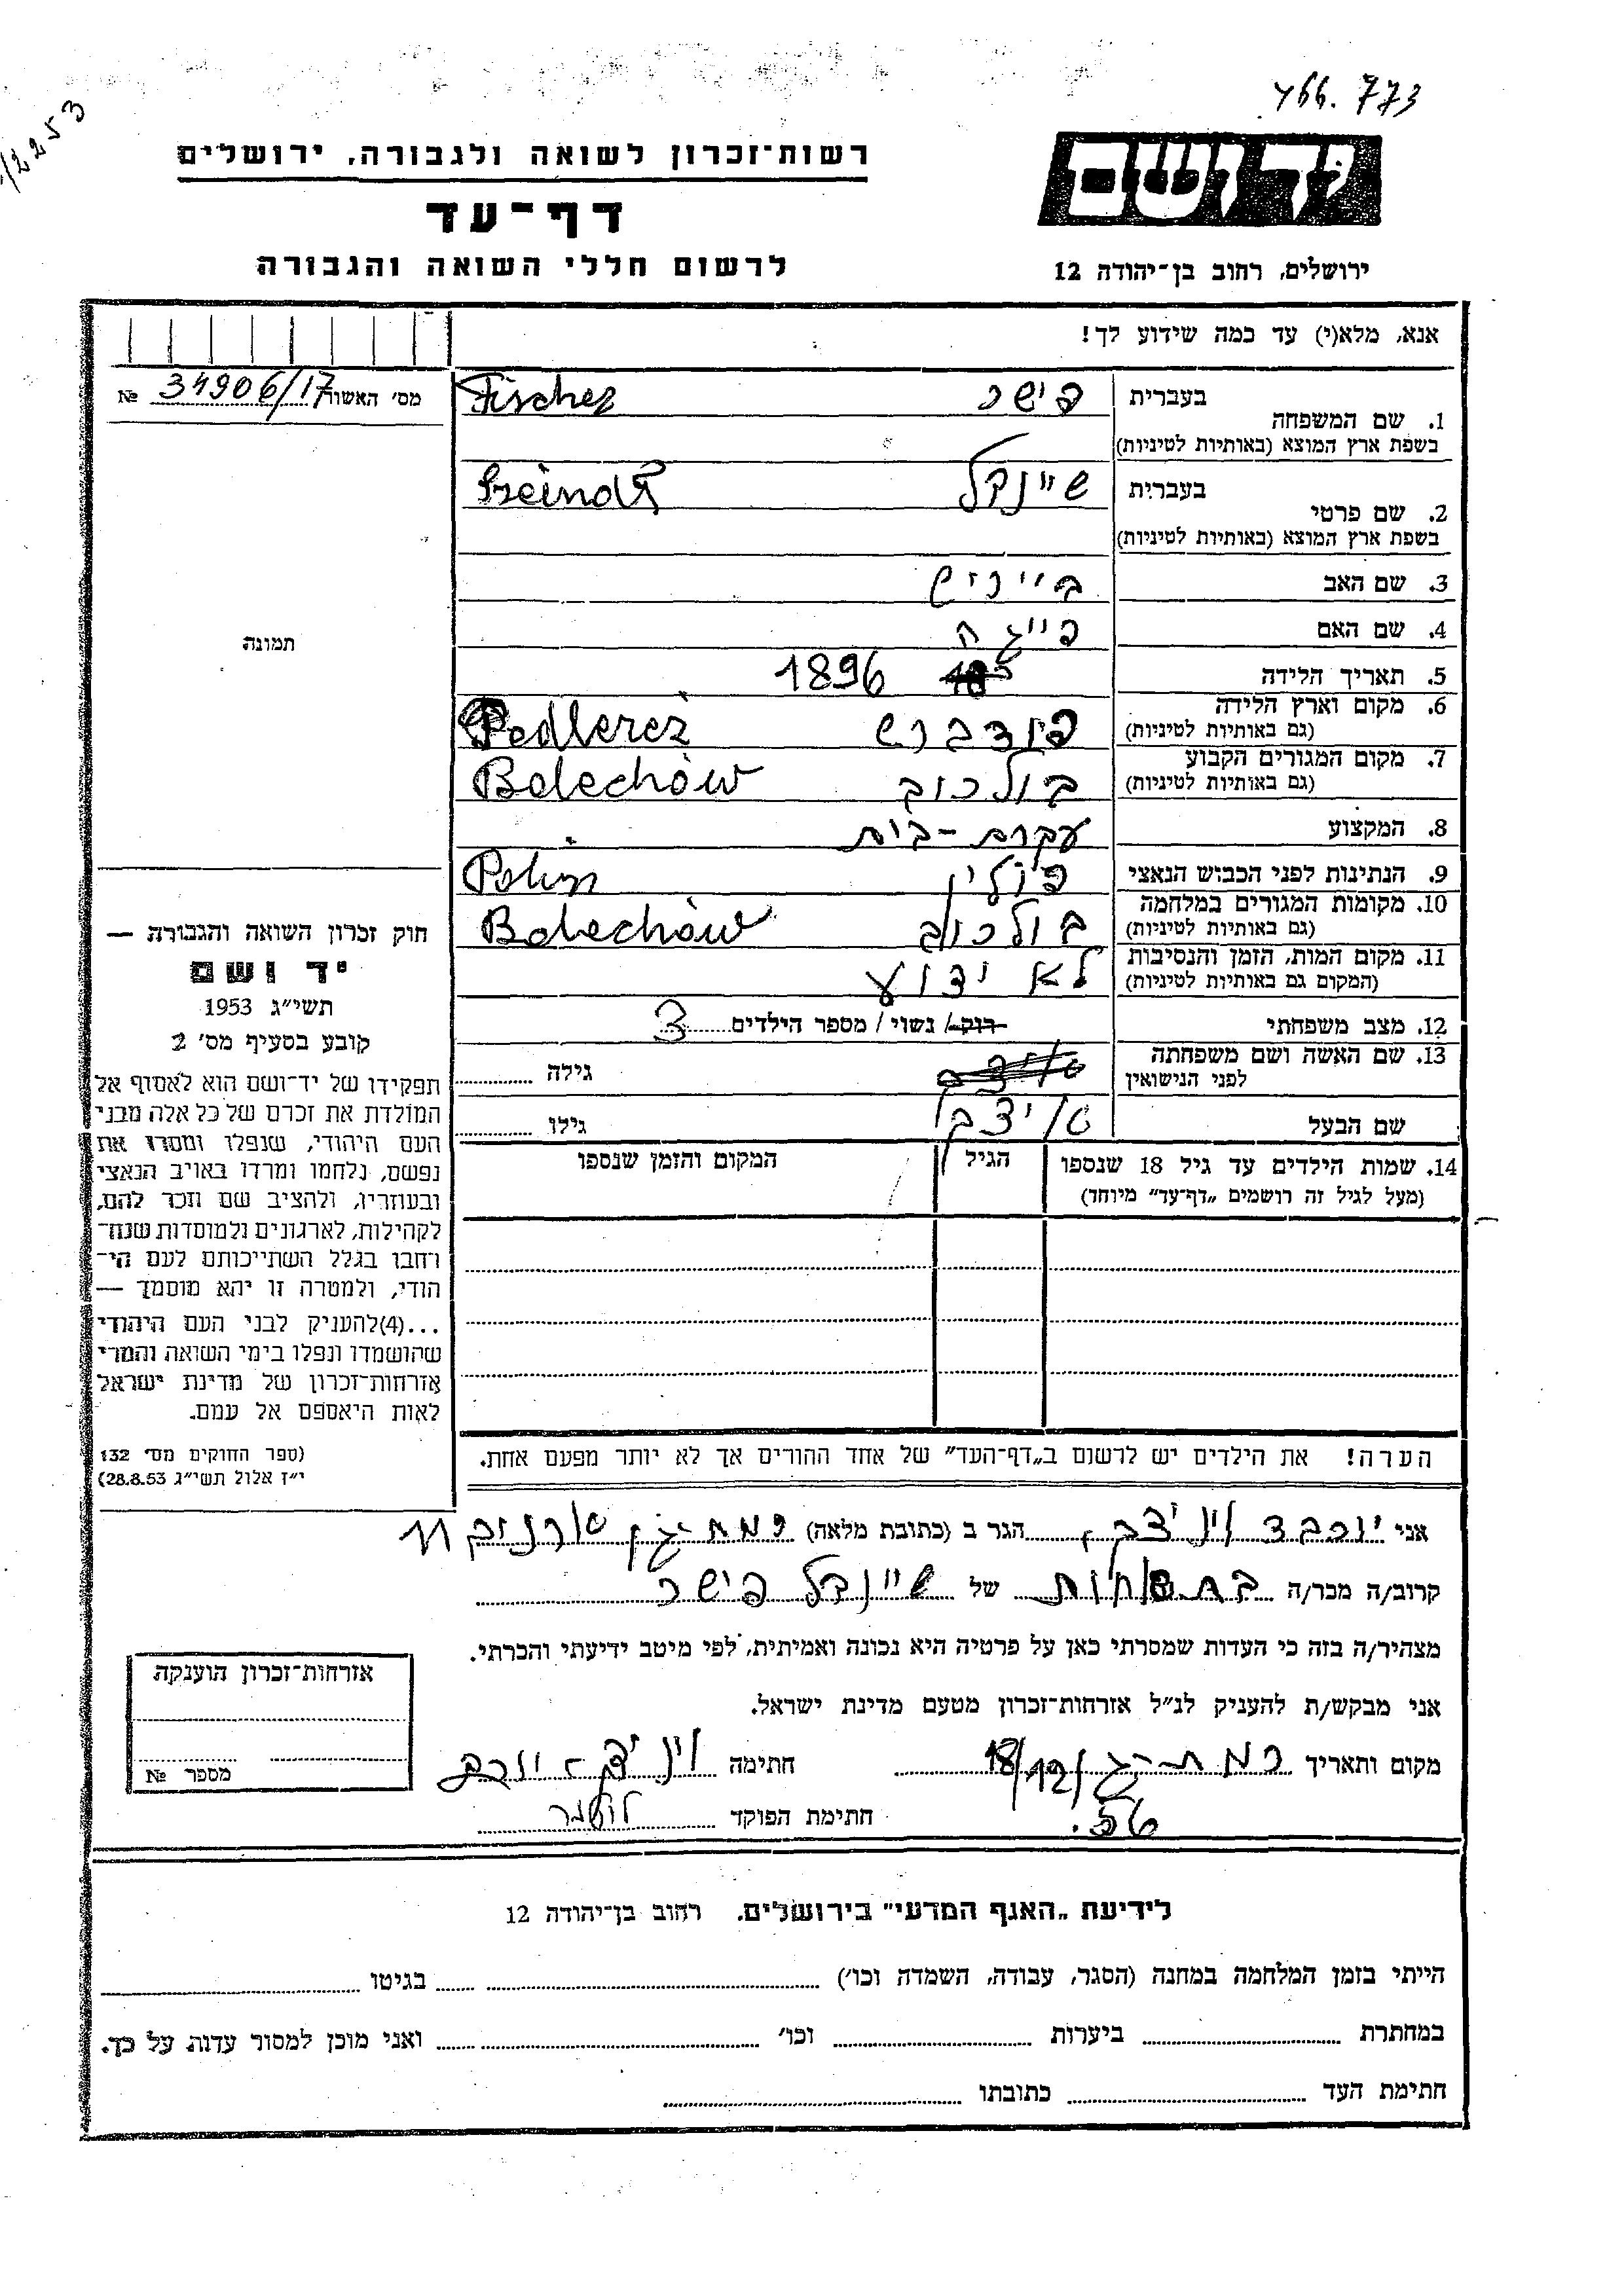 466.773
12253
רשות־זכרון לשואה ולגבורה, ירושלים
יד ושם
דף־עד
לרשום חללי השואה והגבורה
ירושלים, רחוב בן־יהודה 12
אנא, מלא(י) עד כמה שידוע לך!
מס' האשור 34906/17 №
1. שם המשפחה בעברית פישר Fischer
בשפת ארץ המוצא (באותיות לטיניות)
2. שם פרטי בעברית שיינדל
בשפת ארץ המוצא (באותיות לטיניות)
3. שם האב ביינש
4. שם האם פייגה
תמונה
5. תאריך הלידה 1896
6. מקום וארץ הלידה
(גם באותיות לטיניות)
7. מקום המגורים הקבוע בולכוב Bolechów
(גם באותיות לטיניות)
8. המקצוע עקרת-בית
9. הנתינות לפני הכבוש הנאצי פולין
10. מקומות המגורים במלחמה בולכוב Bolechów
(גם באותיות לטיניות)
11. מקום המות, הזמן והנסיבות לא ידוע
(המקום גם באותיות לטיניות)
12. מצב משפחתי רוק/ נשוי / מספר הילדים 3
13. שם האשה ושם משפחתה
לפני הנישואין
גילה
שם הבעל
גילו
14. שמות הילדים עד גיל 18 שנספו
(מעל לגיל זה רושמים „דף־עד" מיוחד)
הגיל
המקום והזמן שנספו
חוק זכרון השואה והגבורה —
יד ושם
תשי"ג 1953
קובע בסעיף מס' 2
תפקידו של יד־ושם הוא לאסוף אל
המולדת את זכרם של כל אלה מבני
העם היהודי, שנפלו ומסרו את
נפשם, נלחמו ומרדו באויב הנאצי
ובעוזריו, ולהציב שם וזכר להם,
לקהילות, לארגונים ולמוסדות שנח־
רחבו בגלל השתייכותם לעם הי־
הודי, ולמטרה זו יהא מוסמך —
...(4)להעניק לבני העם היהודי
שהושמדו ונפלו בימי השואה והמרי
אזרחות־זכרון של מדינת ישראל
לאות היאספם אל עמם.
(ספר החוקים מס' 132
י"ז אלול תשי"ג 28.8.53)
הערה! את הילדים יש לרשום ב„דף־העד" של אחד ההורים אך לא יותר מפעם אחת.
אני יוכבד הגר ב (כתובת מלאה) רמת-גן
קרוב/ה מכר/ה של שיינדל פישר
מצהיר/ה בזה כי העדות שמסרתי כאן על פרטיה היא נכונה ואמיתית, לפי מיטב ידיעתי והכרתי.
אני מבקש/ת להעניק לנ"ל אזרחות־זכרון מטעם מדינת ישראל.
מקום ותאריך רמת-גן 18/12 56. חתימה
חתימת הפוקד
אזרחות־זכרון הוענקה
מספר №
לידיעת „האגף המדעי" בירושלים. רחוב בן־יהודה 12
הייתי בזמן המלחמה במחנה (הסגר, עבודה, השמדה וכו') בגיטו
במחתרת ביערות וכו' ואני מוכן למסור עדות על כך.
חתימת העד כתובתו